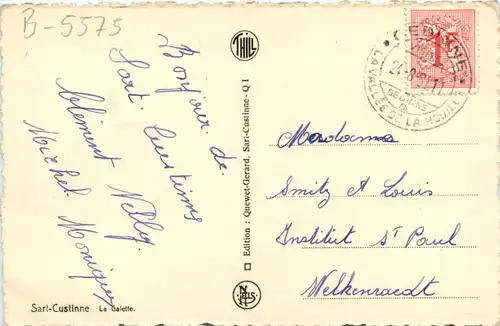 B-5575
Bonjour de
Sart Custinne
Clément Nelly
Michel Monique
Sart-Custinne La Galette.
THILL
Edition : Quewet-Gerard, Sart-Custinne - Q 1
NELS
1F
GEDINNE
LA VALLÉE DE LA HOUILLE
Mesdames
Smitz et Louis
Institut St Paul
Welkenraedt